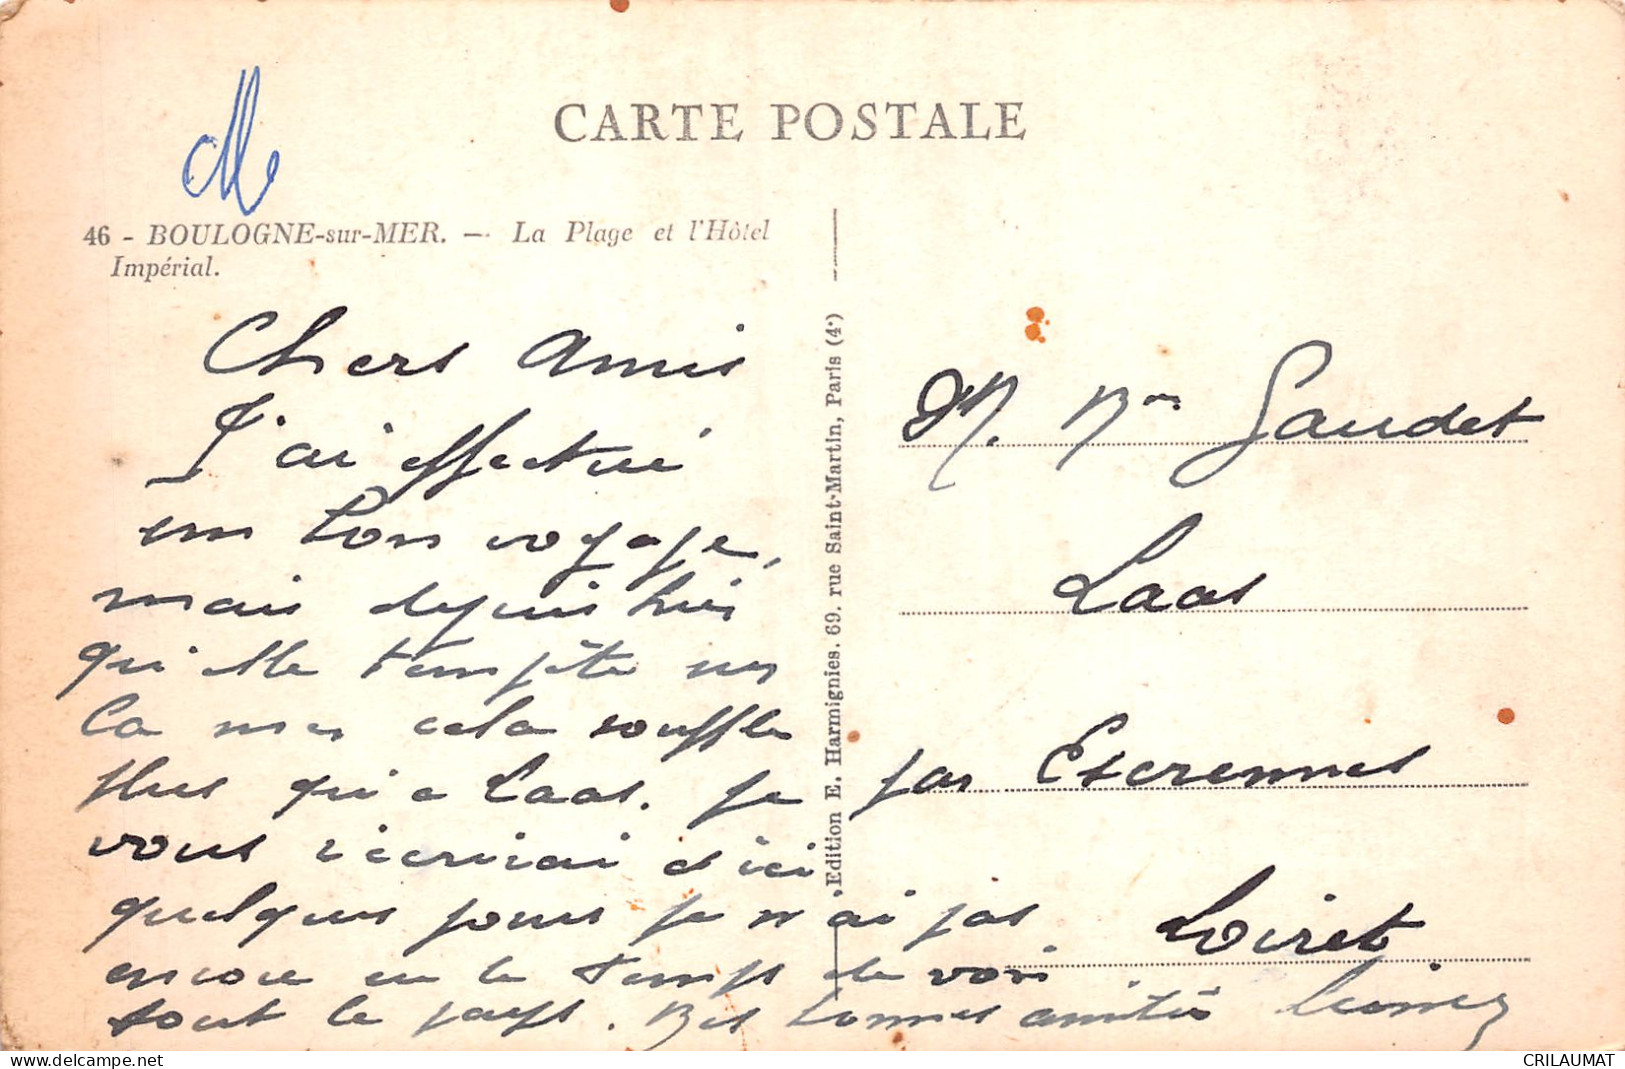 CARTE POSTALE
46 - BOULOGNE-sur-MER. — La Plage et l'Hôtel
Impérial.
Chers Amis
J'ai effectué
un bon voyage,
mais depuis hier
qu'elle tempête sur
la mer cela souffle
plus qu'a Laas. Je
vous écrirai d'ici
quelques jours je n'ai pas
encore eu le temps de voir
tout le pays. Bes bonnes amitiés
Edition E. Harmignies. 69. rue Saint-Martin, Paris (4e)
M. Gaudet
Laas
par Escrennes
Loiret
delcampe.net
CRILAUMAT